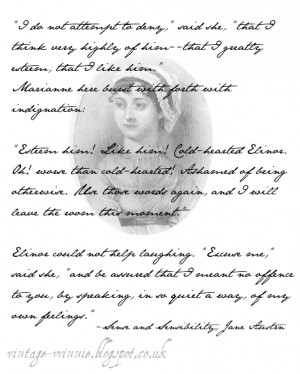 "I do not attempt to deny," said she, "that I
think very highly of him--that I greatly
esteem, that I like him."
Marianne here burst with forth with
indignation:
"Esteem him! Like him! Cold-hearted Elinor.
Oh! worse than cold-hearted! Ashamed of being
otherwise. Use those words again, and I will
leave the room this moment."
Elinor could not help laughing. "Excuse me,"
said she, "and be assured that I meant no offence
to you, by speaking, in so quiet a way, of my
own feelings."
-Sense and Sensibility, Jane Austen
vintage-winnie.blogspot.co.uk